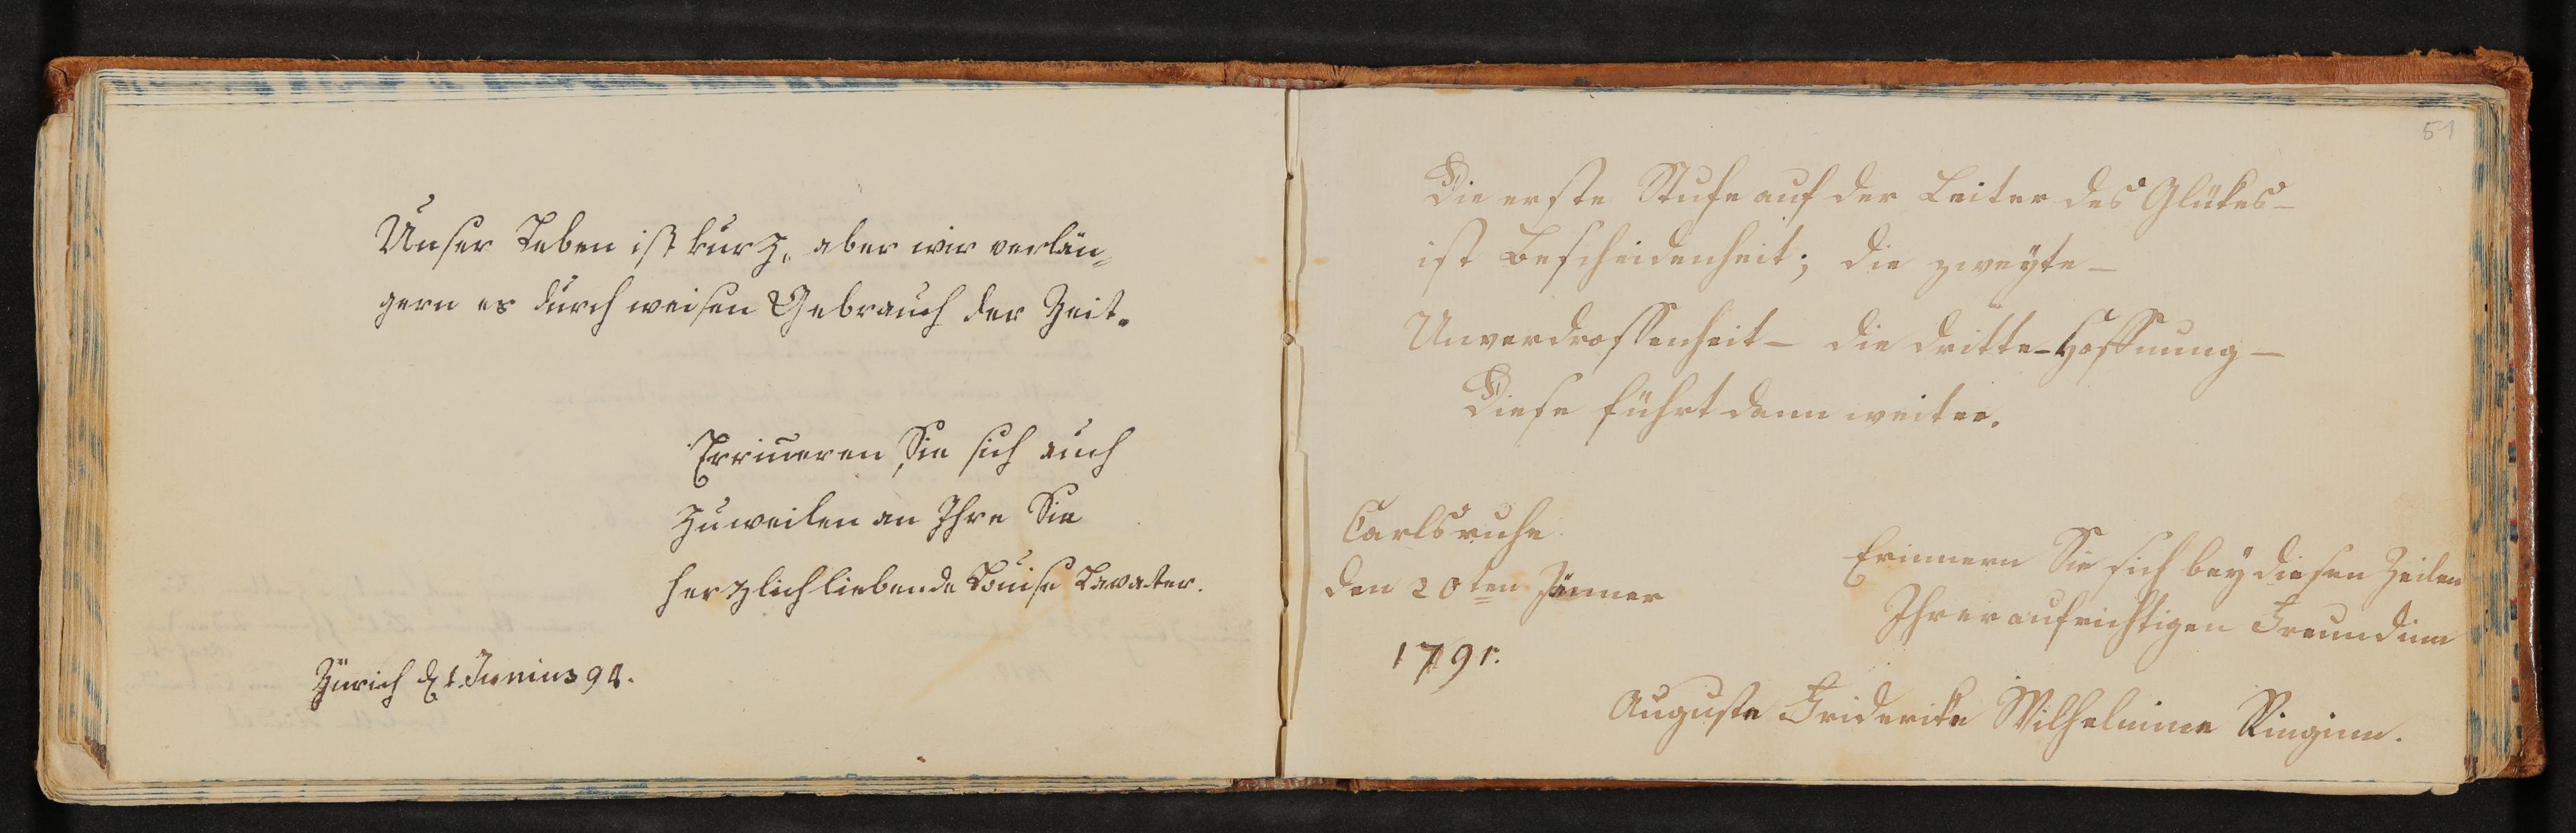 Unser Leben ist kurz, aber wir verlän¬
gern es durch weisen Gebrauch der Zeit.
Errineren Sie sich auch
zuweilen an Ihre Sie
herzlich liebende Louise Lavater.
Zürich d. 1. Junius 94.
51
Die erste Stufe auf der Leiter des Glükes –
ist Bescheidenheit; die zweyte –
Unverdrossenheit – die dritte – Hoffnung –
Diese führt dann weiter.
Carlsruhe
den 20ten Jänner
1791.
Erinnern Sie sich bey diesen Zeilen
Ihrer aufrichtigen Freundinn
Auguste Friderike Wilhelmine Ringinn.